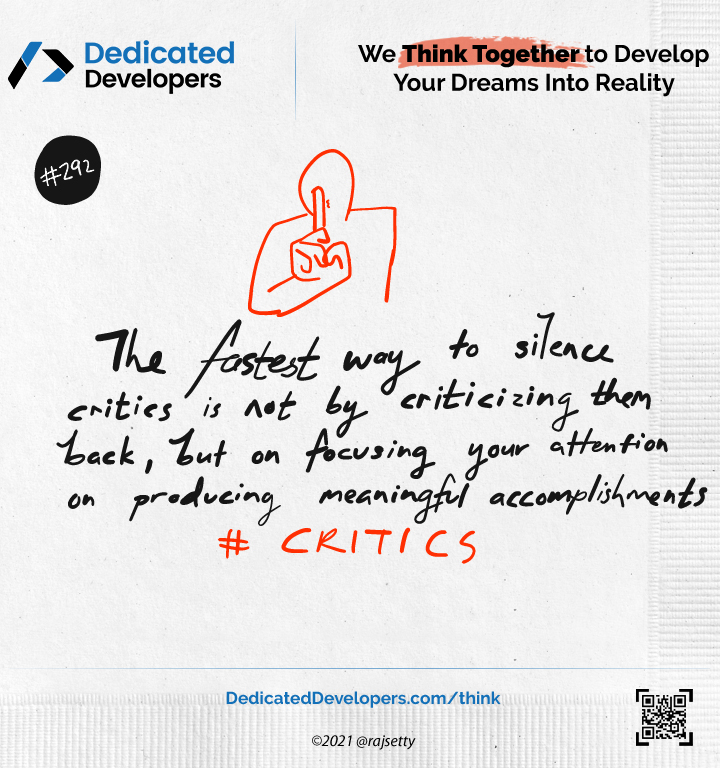 Dedicated
Developers
We Think Together to Develop
Your Dreams Into Reality
#292
The fastest way to silence
critics is not by criticizing them
back, but on focusing your attention
on producing meaningful accomplishments
# CRITICS
DedicatedDevelopers.com/think
©2021 @rajsetty